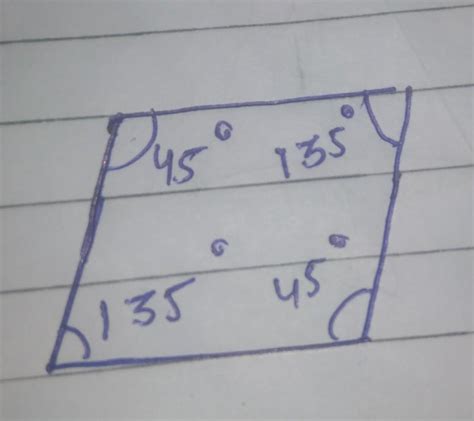 45° 135°
135° 45°